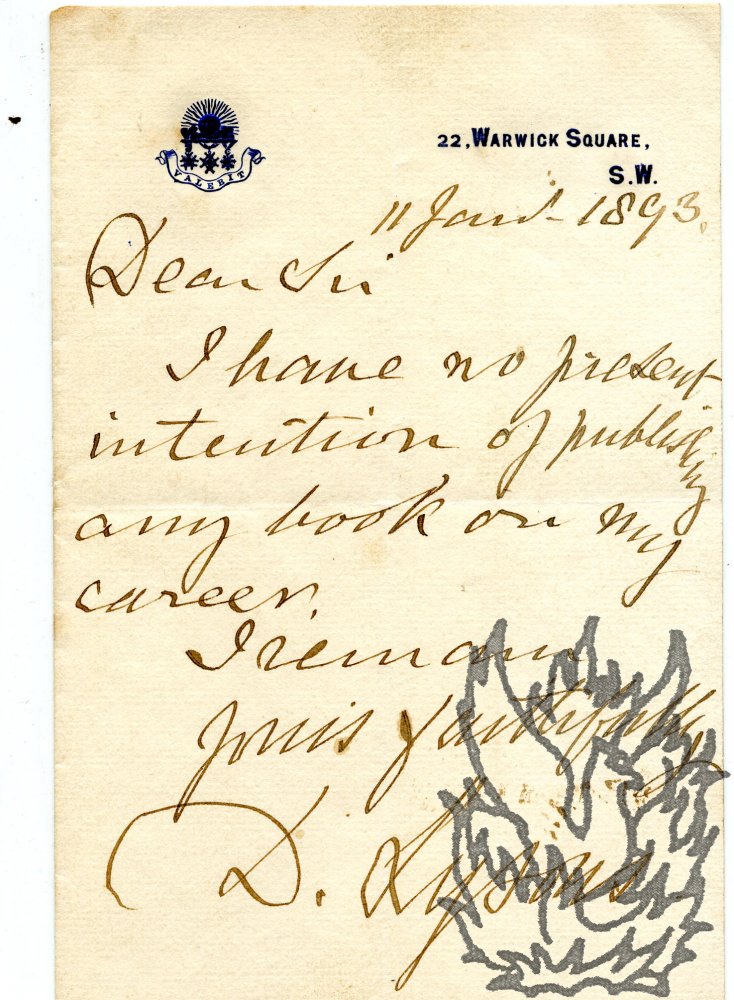 VALEBIT
22, WARWICK SQUARE,
S.W.
11 Jany 1893.
Dear Sir
I have no present
intention of publishing
any book on my
career.
I remain
yours faithfully
D. Lysons